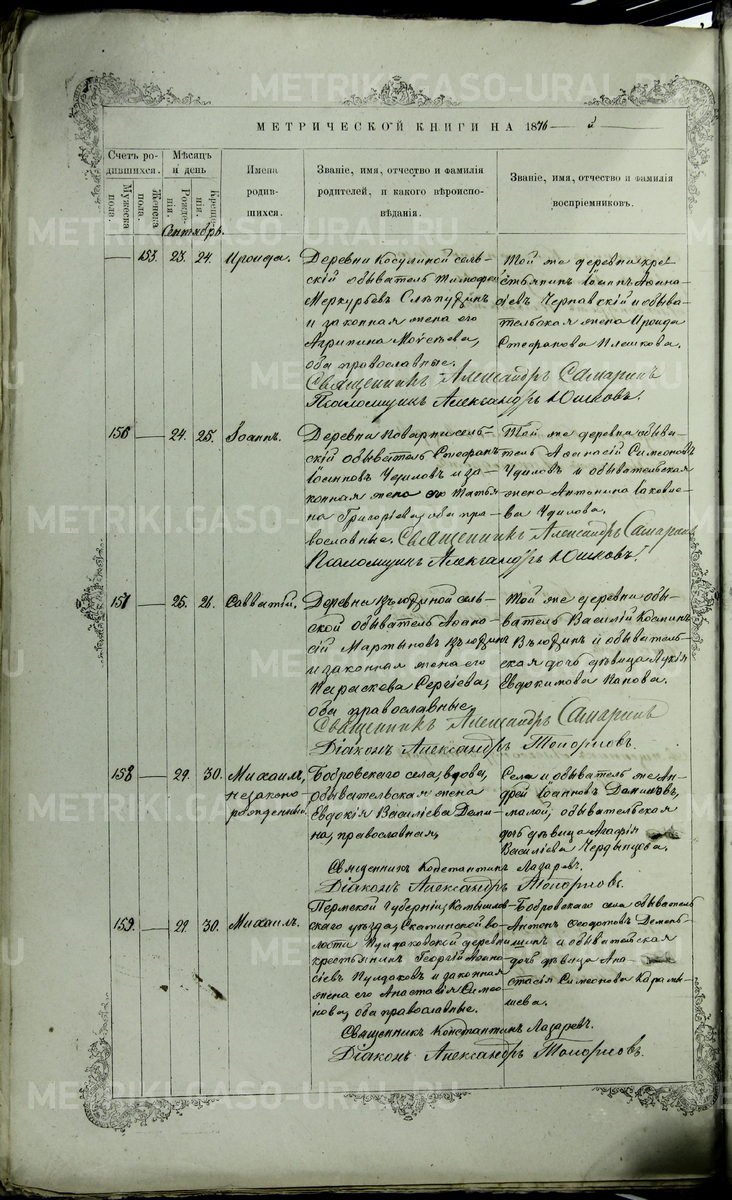 МЕТРИЧЕСКОЙ КНИГИ НА 1876
Счетъ родившихся.
Мужеска пола.
Женска пола.
Мѣсяцъ и день
Рожденія.
Крещенія.
Имена родившихся.
Званіе, имя, отчество и фамилія родителей, и какого вѣроисповѣданія.
Званіе, имя, отчество и фамилія воспріемниковъ.
Сентябрь.
153. 23. 24. Ироида.
Деревни Косулиной сельскій обыватель Тимофей
Меркурьевъ
и законная жена его
Агрипина Моѵсеева,
оба православные.
Той же деревни крестьянинъ Іоаннъ
Чернавскій и обывательская жена Ироида
Стефанова Плешкова.
Священникъ Александръ Самаринъ
Псаломщикъ Александръ Юшковъ.
156 24. 25. Іоаннъ.
Деревни сельскій обыватель Стефанъ
Іоанновъ Чудиловъ и законная жена его Татьяна Григоріева, оба православные.
Той же деревни обыватель Аѳанасій Симеоновъ
Чудиловъ и обывательская
жена Антонина Іаковлева Чудилова.
Священникъ Александръ Самаринъ
Псаломщикъ Александръ Юшковъ.
157 25. 26. Савватій.
Деревни сельской обыватель
Мартыновъ
и законная жена его
Параскева Сергіева,
оба православные.
Той же деревни обыватель Василій Козминъ
и обывательская дочь дѣвица Лукія
Евдокимова Папова.
Священникъ Александръ Самаринъ
Діаконъ Александръ Топорковъ.
158 29. 30. Михаилъ,
незаконнорожденный.
Бобровскаго села, вдова,
обывательская жена
Евдокія Василіева Демина, православная,
Села и обыватель же Андрей Іоанновъ Даниловъ,
малой, обывательская
дочь дѣвица Агафія
Василіева Чердынцова.
Священникъ Константинъ Лазаревъ.
Діаконъ Александръ Топорковъ.
159. 29. 30. Михаилъ.
Пермской Губерніи, Камышловскаго уѣзда, Скатинской волости Пулдаковской деревни
крестьянинъ Георгій
Пулдаковъ и законная
жена его Анастасія Симеонова, оба православные.
Бобровскаго села обыватель
Антонъ Ѳеодотовъ
и обывательская
дочь дѣвица Анастасія Симеонова
Священникъ Константинъ Лазаревъ.
Діаконъ Александръ Топорковъ.
METRIKI.GASO-URAL.RU